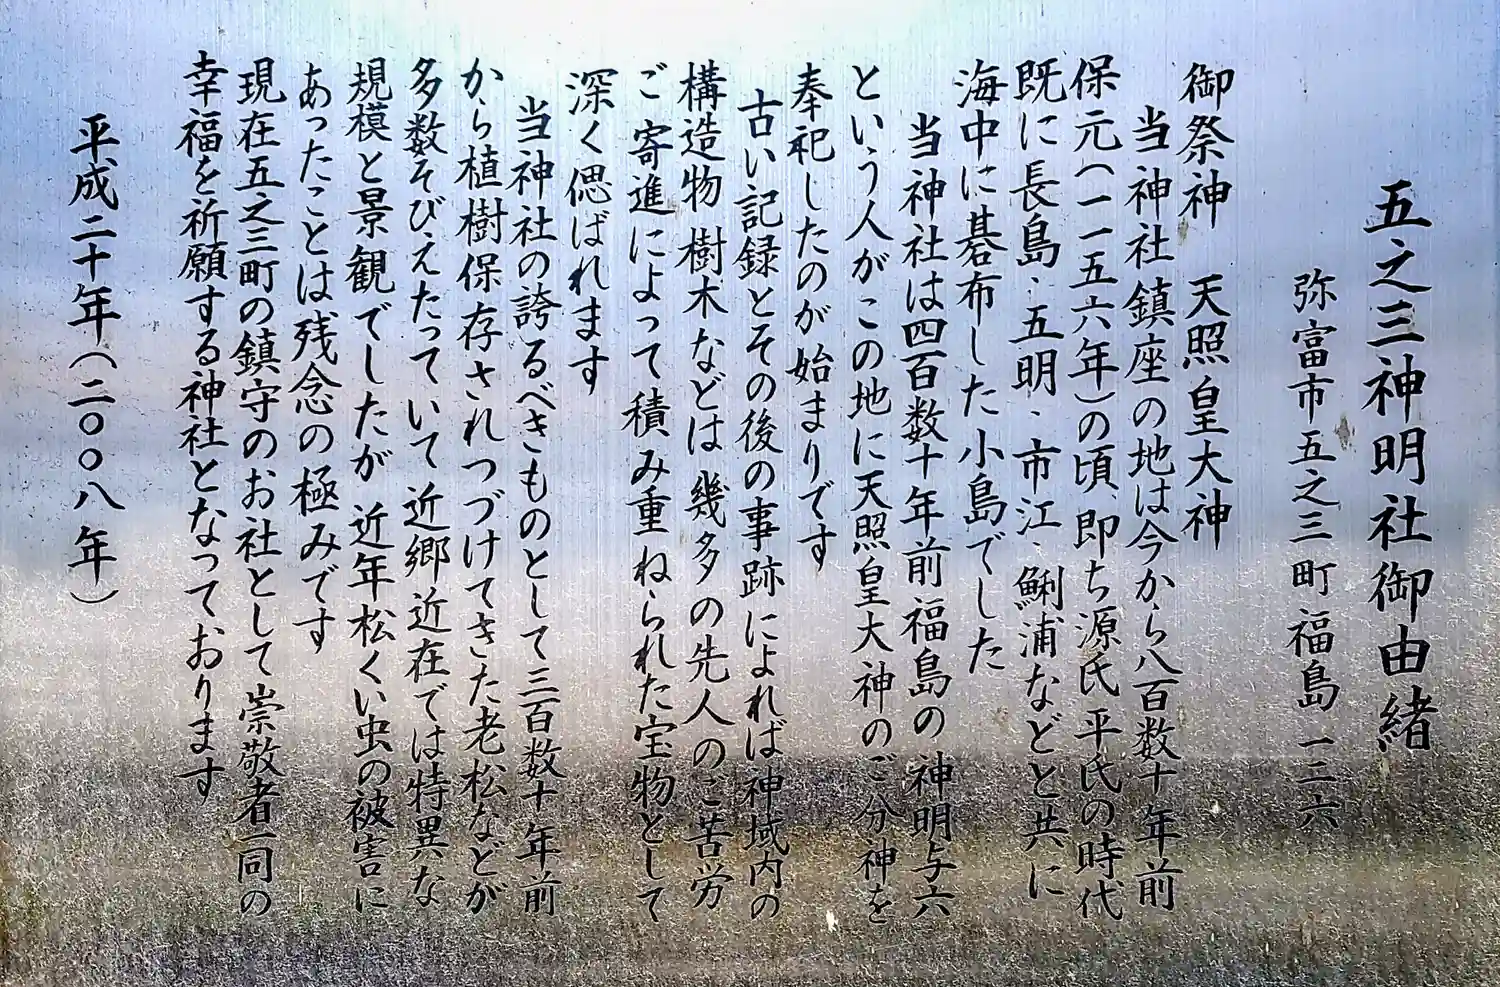 五之三神明社御由緒
弥富市五之三町福島一二六
御祭神　天照皇大神
当神社鎮座の地は今から八百数十年前
保元(一一五六年)の頃、即ち源氏平氏の時代
既に長島・五明・市江・鯏浦などと共に
海中に碁布した小島でした
当神社は四百数十年前福島の神明与六
という人がこの地に天照皇大神のご分神を
奉祀したのが始まりです
古い記録とその後の事跡によれば神域内の
構造物　樹木などは幾多の先人のご苦労
ご寄進によって積み重ねられた宝物として
深く偲ばれます
当神社の誇るべきものとして三百数十年前
から植樹保存されつづけてきた老松などが
多数そびえたっていて近郷近在では特異な
規模と景観でしたが　近年松くい虫の被害に
あったことは残念の極みです
現在五之三町の鎮守のお社として崇敬者一同の
幸福を祈願する神社となっております
平成二十年(二〇〇八年)